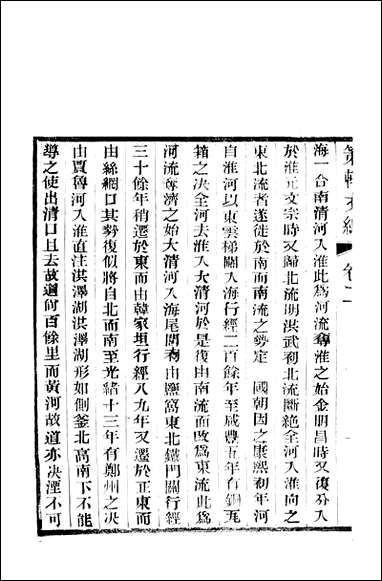 策軺文編 卷二
海一合南清河入淮此為河流奪淮之始金明昌時又復分入
於淮元文宗時又歸北流明洪武初北流斷絶全河入淮向之
東北流者遂徙於南而南流之勢定 國朝因之康熙初年河
自淮河以東雲梯關入海行經二百餘年至咸豐五年有銅瓦
箱之决全河去淮入大清河於是復由南流而改為東流此為
河流奪濟之始大清河入海尾閭初由鹽窩東北鐵門關行經
三十餘年稍遷於東而由韓家垣行經八九年又遷於正東而
由絲網口其勢復似將自北而南至光緒十三年有鄭州之决
由賈魯河入淮直注洪澤湖洪澤湖形如側釜北高南下不能
導之使出清口且去故道尚百餘里而黃河故道亦决湮不可